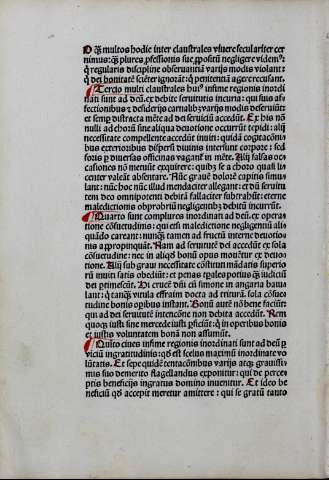 O q̃ multos hodie inter claustrales viuere seculariter cer
nimus: q̃ plures p̃fessionis sue p̱positũ negligere videm⁹:
q̃ regularis discipline obseruantiã varijs modis violant:
q̃ dei bonitatẽ sic̃ter ignorãt: q̃ penitentiã agere recusant.
Tercio multi claustrales hui⁹ infime regionis inordi
nati sunt ad deũ ex debite seruitutis incuria: qui suis af
fectionibus ⁊ desiderijs carnalib⁹ varijs modis deseruiũt:
et semp̱ distracta mẽte ad dei seruiciũ accedũt. Ex his nõ
nulli ad chorũ sine aliqua deuotione occurrũt tepidi: alij
necessitate compellente accedũt inuiti: quidã
exterioribus dispersi diuinis intersunt corpore: sed
foris p̱ diuersas officinas vagant̃ in mẽte. Alij falsas occa
siones nõ metuũt exquirere: quib⁹ se a choro quasi li
center valeãt absentare. Nũc graue dolorẽ capitis simu
lant: nũc hoc nũc illud mendaciter allegant: et dũ seruitu
tem deo omnipotenti debitã fallaciter subtrahũt: eterne
maledictionis obprobriũ negligentib⁹ debitũ incurrũt.
Quarto sunt complures inordinati ad deũ. ex opera
tione cõsuetudinis: qui etsi maledictione negligentiũ ali
quãdo careant: nunq̃ tamen ad fructũ interne deuotio
nis appropinquãt. Nam ad seruitutẽ dei accedũt ex sola
cõsuetudine: nec in aliq̃d bonũ opus mouẽtur ex deuoti
one. Alij sub graui necessitate cõstituti mãdatis superio
rũ muti satis obediũt: et penas t̃pales potius q̃ iudiciũ
dei ptimescũt. Di crucẽ dñi cũ simone in angaria baiu
lant: q̃ tanq̃ vitula effraim docta ad triturã. sola cõsue
tudine bonis opibus instant. Bonũ autẽ nõ bene faciũt:
qui ad dei seruitutẽ intencõne non debita accedũt. Rem
quoq̃ iustã sine mercede iusti p̱ficiũt: q̃ in operibus bonis
et iustis voluntatem bonã non assumũt.
Quito ciues infime regionis inordinati sunt ad deũ p̱
viciũ ingratitudinis: qd̃ est scelus maximũ inordinate vo
lũtatis. Et sepe quidẽ tentacõnibus varijs atq̃ grauissi
mis suo demerito flagellandus exponitur: qui de perce
ptis beneficijs ingratus domino inuenitur. Et ideo be
neficiũ qd̃ accepit meretur amittere: qui se gratũ tanto